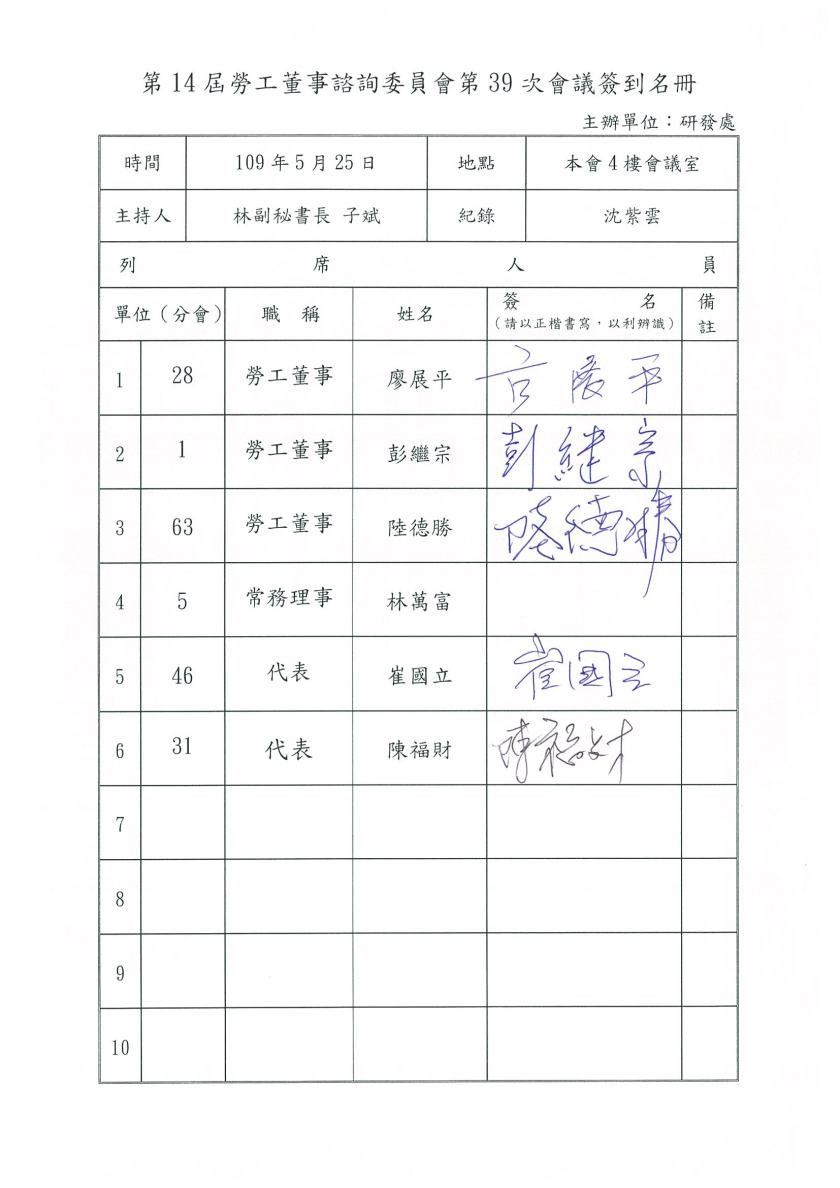 第14屆勞工董事諮詢委員會第39次會議簽到名冊
主辦單位：研發處
時間 109年5月25日 地點 本會4樓會議室
主持人 林副秘書長 子斌 紀錄 沈紫雲
列 席 人 員
單位（分會） 職 稱 姓名 簽 名 備註
（請以正楷書寫，以利辨識）
1 28 勞工董事 廖展平 展平
2 1 勞工董事 彭繼宗 彭継宗
3 63 勞工董事 陸德勝 陸德勝
4 5 常務理事 林萬富
5 46 代表 崔國立 崔國立
6 31 代表 陳福財 陳福財
7
8
9
10